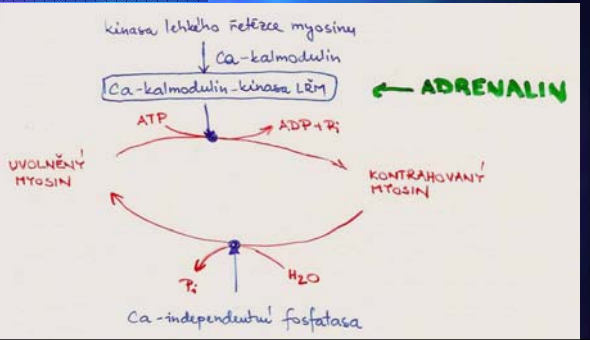 kinasa lehkého řetězce myosinu
Ca-kalmodulin
Ca-kalmodulin-kinasa LŘM
← ADRENALIN
ATP
ADP+Pi
UVOLNĚNÝ
MYOSIN
KONTRAHOVANÝ
MYOSIN
Pi
H2O
Ca-independentní fosfatasa